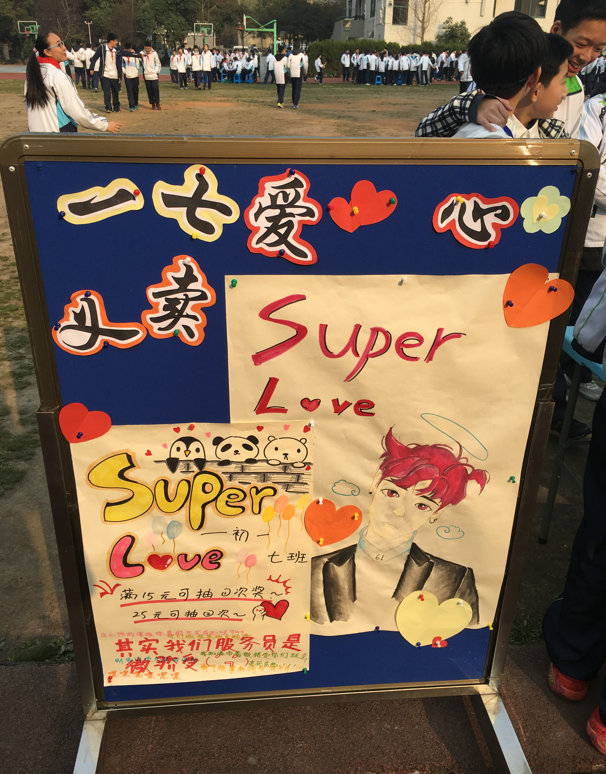 一七爱心
义卖
Super
Love
Super
一初一
Love
七班
满15元可抽次奖~
25元可抽次~
其实我们服务员是
傲骄受